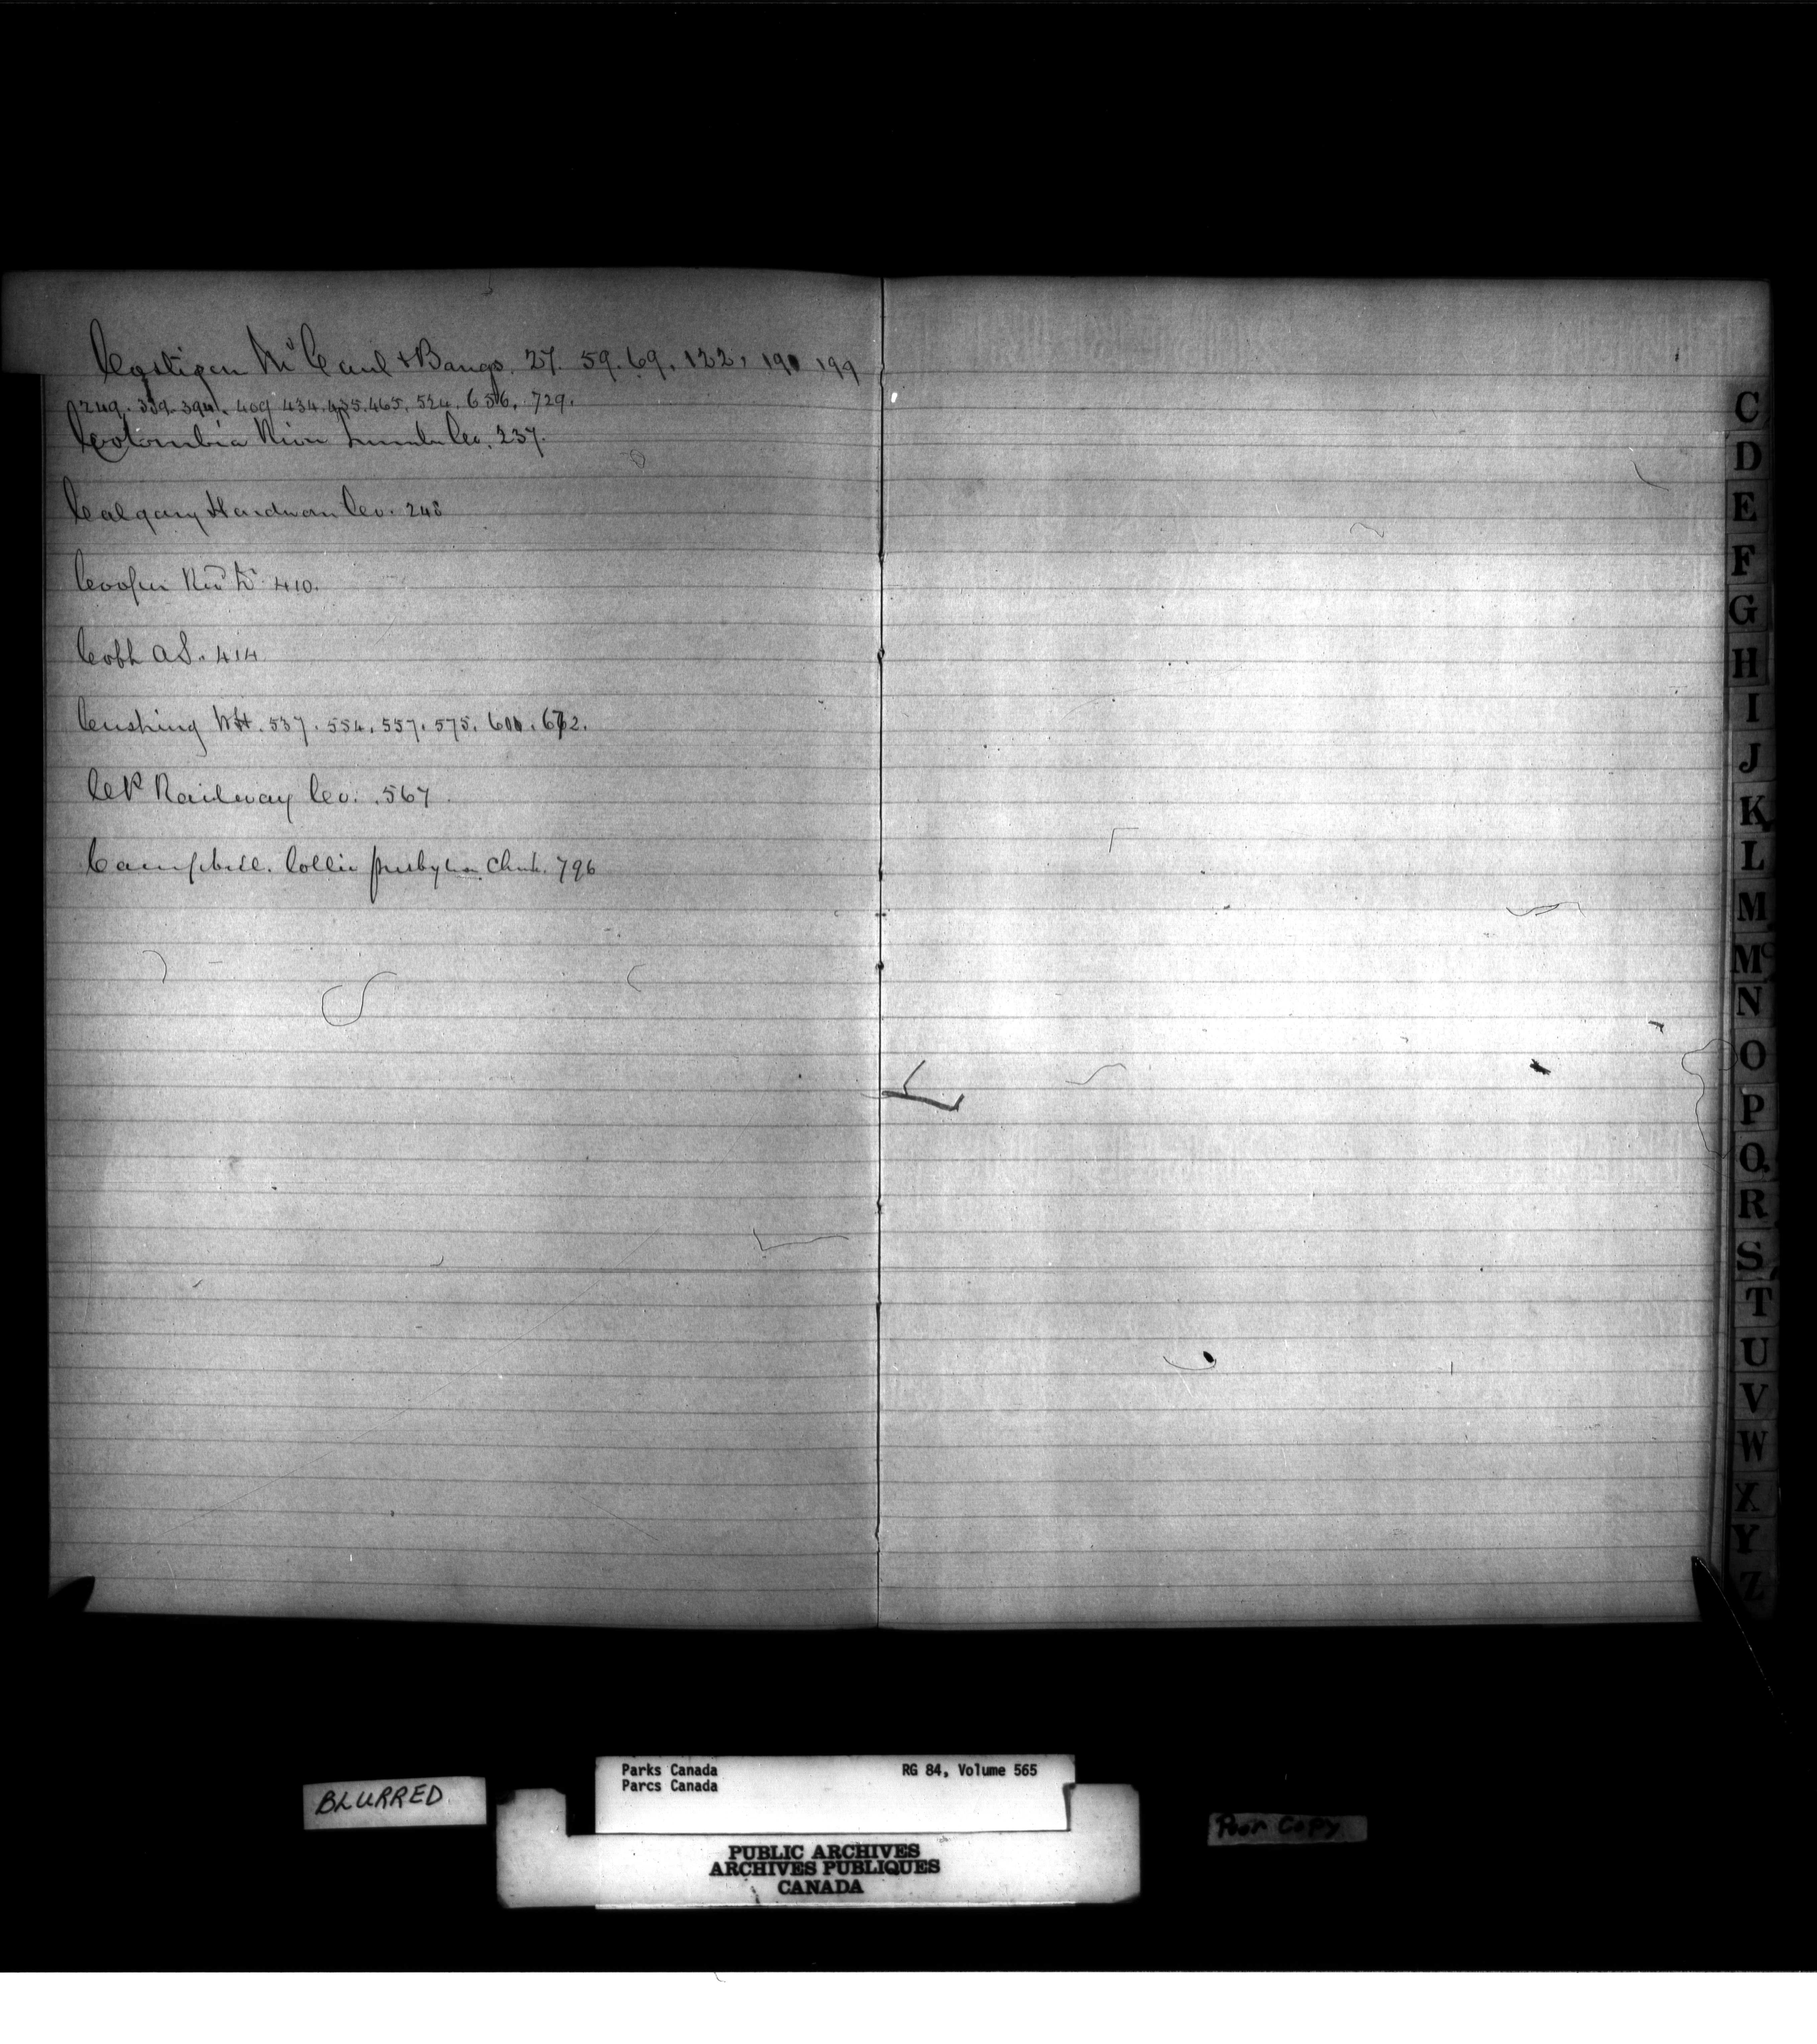 Costigan McCaul & Bangs. 27. 59. 69. 122. 190 199
249. 339. 394. 409 434. 435. 465. 524. 656. 729.
Columbia River Lumber Co. 237.
Calgary Hardware Co. 248
Cooper 410.
Cobb A.S. 414
Cushing WH. 537. 554. 557. 575. 600. 672.
CP Railway Co. 567.
Campbell. Collie presbyterian Church. 796
C
D
E
F
G
H
I
J
K
L
M
Mc
N
O
P
Q
R
S
T
U
V
W
X
Y
Z
BLURRED
Parks Canada RG 84, Volume 565
Parcs Canada
PUBLIC ARCHIVES
ARCHIVES PUBLIQUES
CANADA
Poor Copy